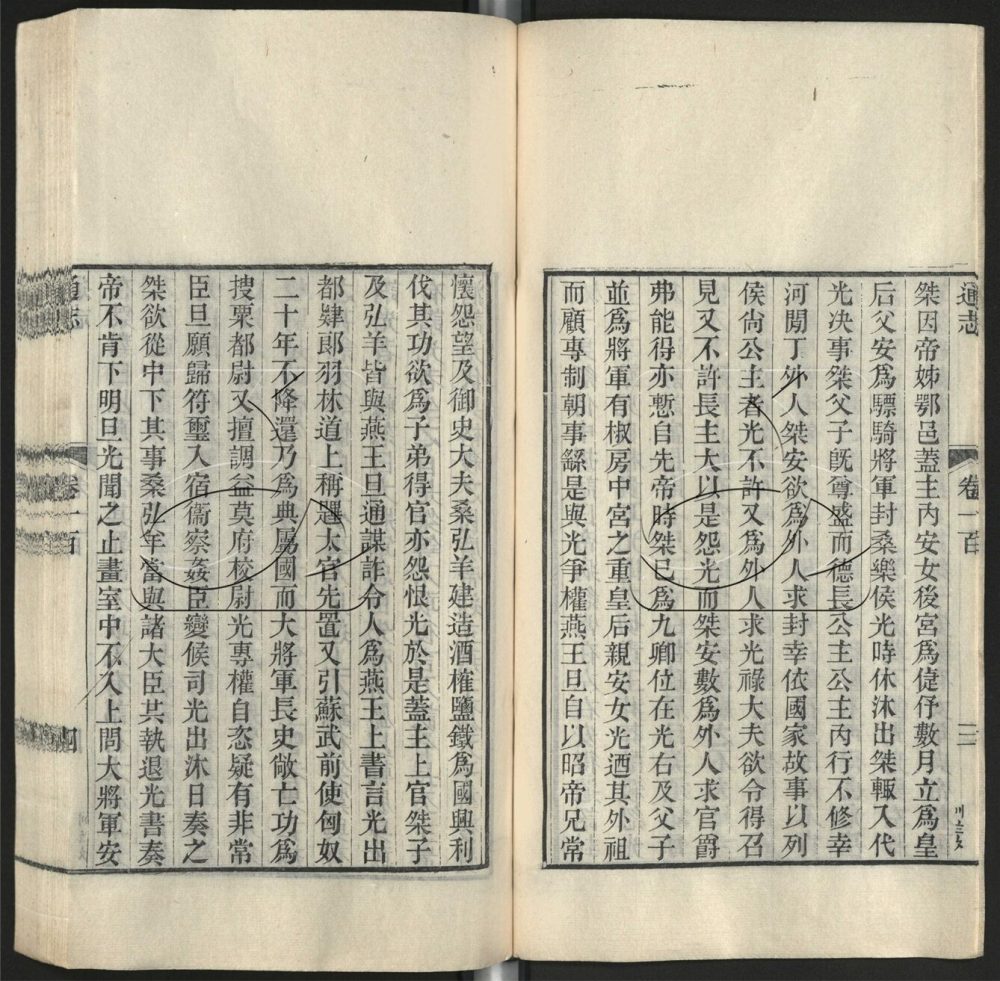 通志
卷一百
三
桀因帝姊鄂邑蓋主內安女後宮爲倢伃數月立爲皇
后父安爲驃騎將軍封桑樂侯光時休沐出桀輙入代
光決事桀父子旣尊盛而德長公主公主內行不修幸
河閒丁外人桀安欲爲外人求封幸依國家故事以列
侯尙公主者光不許又爲外人求光祿大夫欲令得召
見又不許長主大以是怨光而桀安數爲外人求官爵
弗能得亦慙自先帝時桀已爲九卿位在光右及父子
並爲將軍有椒房中宮之重皇后親安女光迺其外祖
而顧專制朝事繇是與光爭權燕王旦自以昭帝兄常
懷怨望及御史大夫桑弘羊建造酒榷鹽鐵爲國興利
伐其功欲爲子弟得官亦怨恨光於是蓋主上官桀子
及弘羊皆與燕王旦通謀詐令人爲燕王上書言光出
都肄郞羽林道上稱趩太官先置又引蘇武前使匈奴
二十年不降還乃爲典屬國而大將軍長史敞亡功爲
搜粟都尉又擅調益莫府校尉光專權自恣疑有非常
臣旦願歸符璽入宿衞察姦臣變候司光出沐日奏之
桀欲從中下其事桑弘羊當與諸大臣共執退光書奏
帝不肯下明旦光聞之止畫室中不入上問大將軍安
通志
卷一百
四